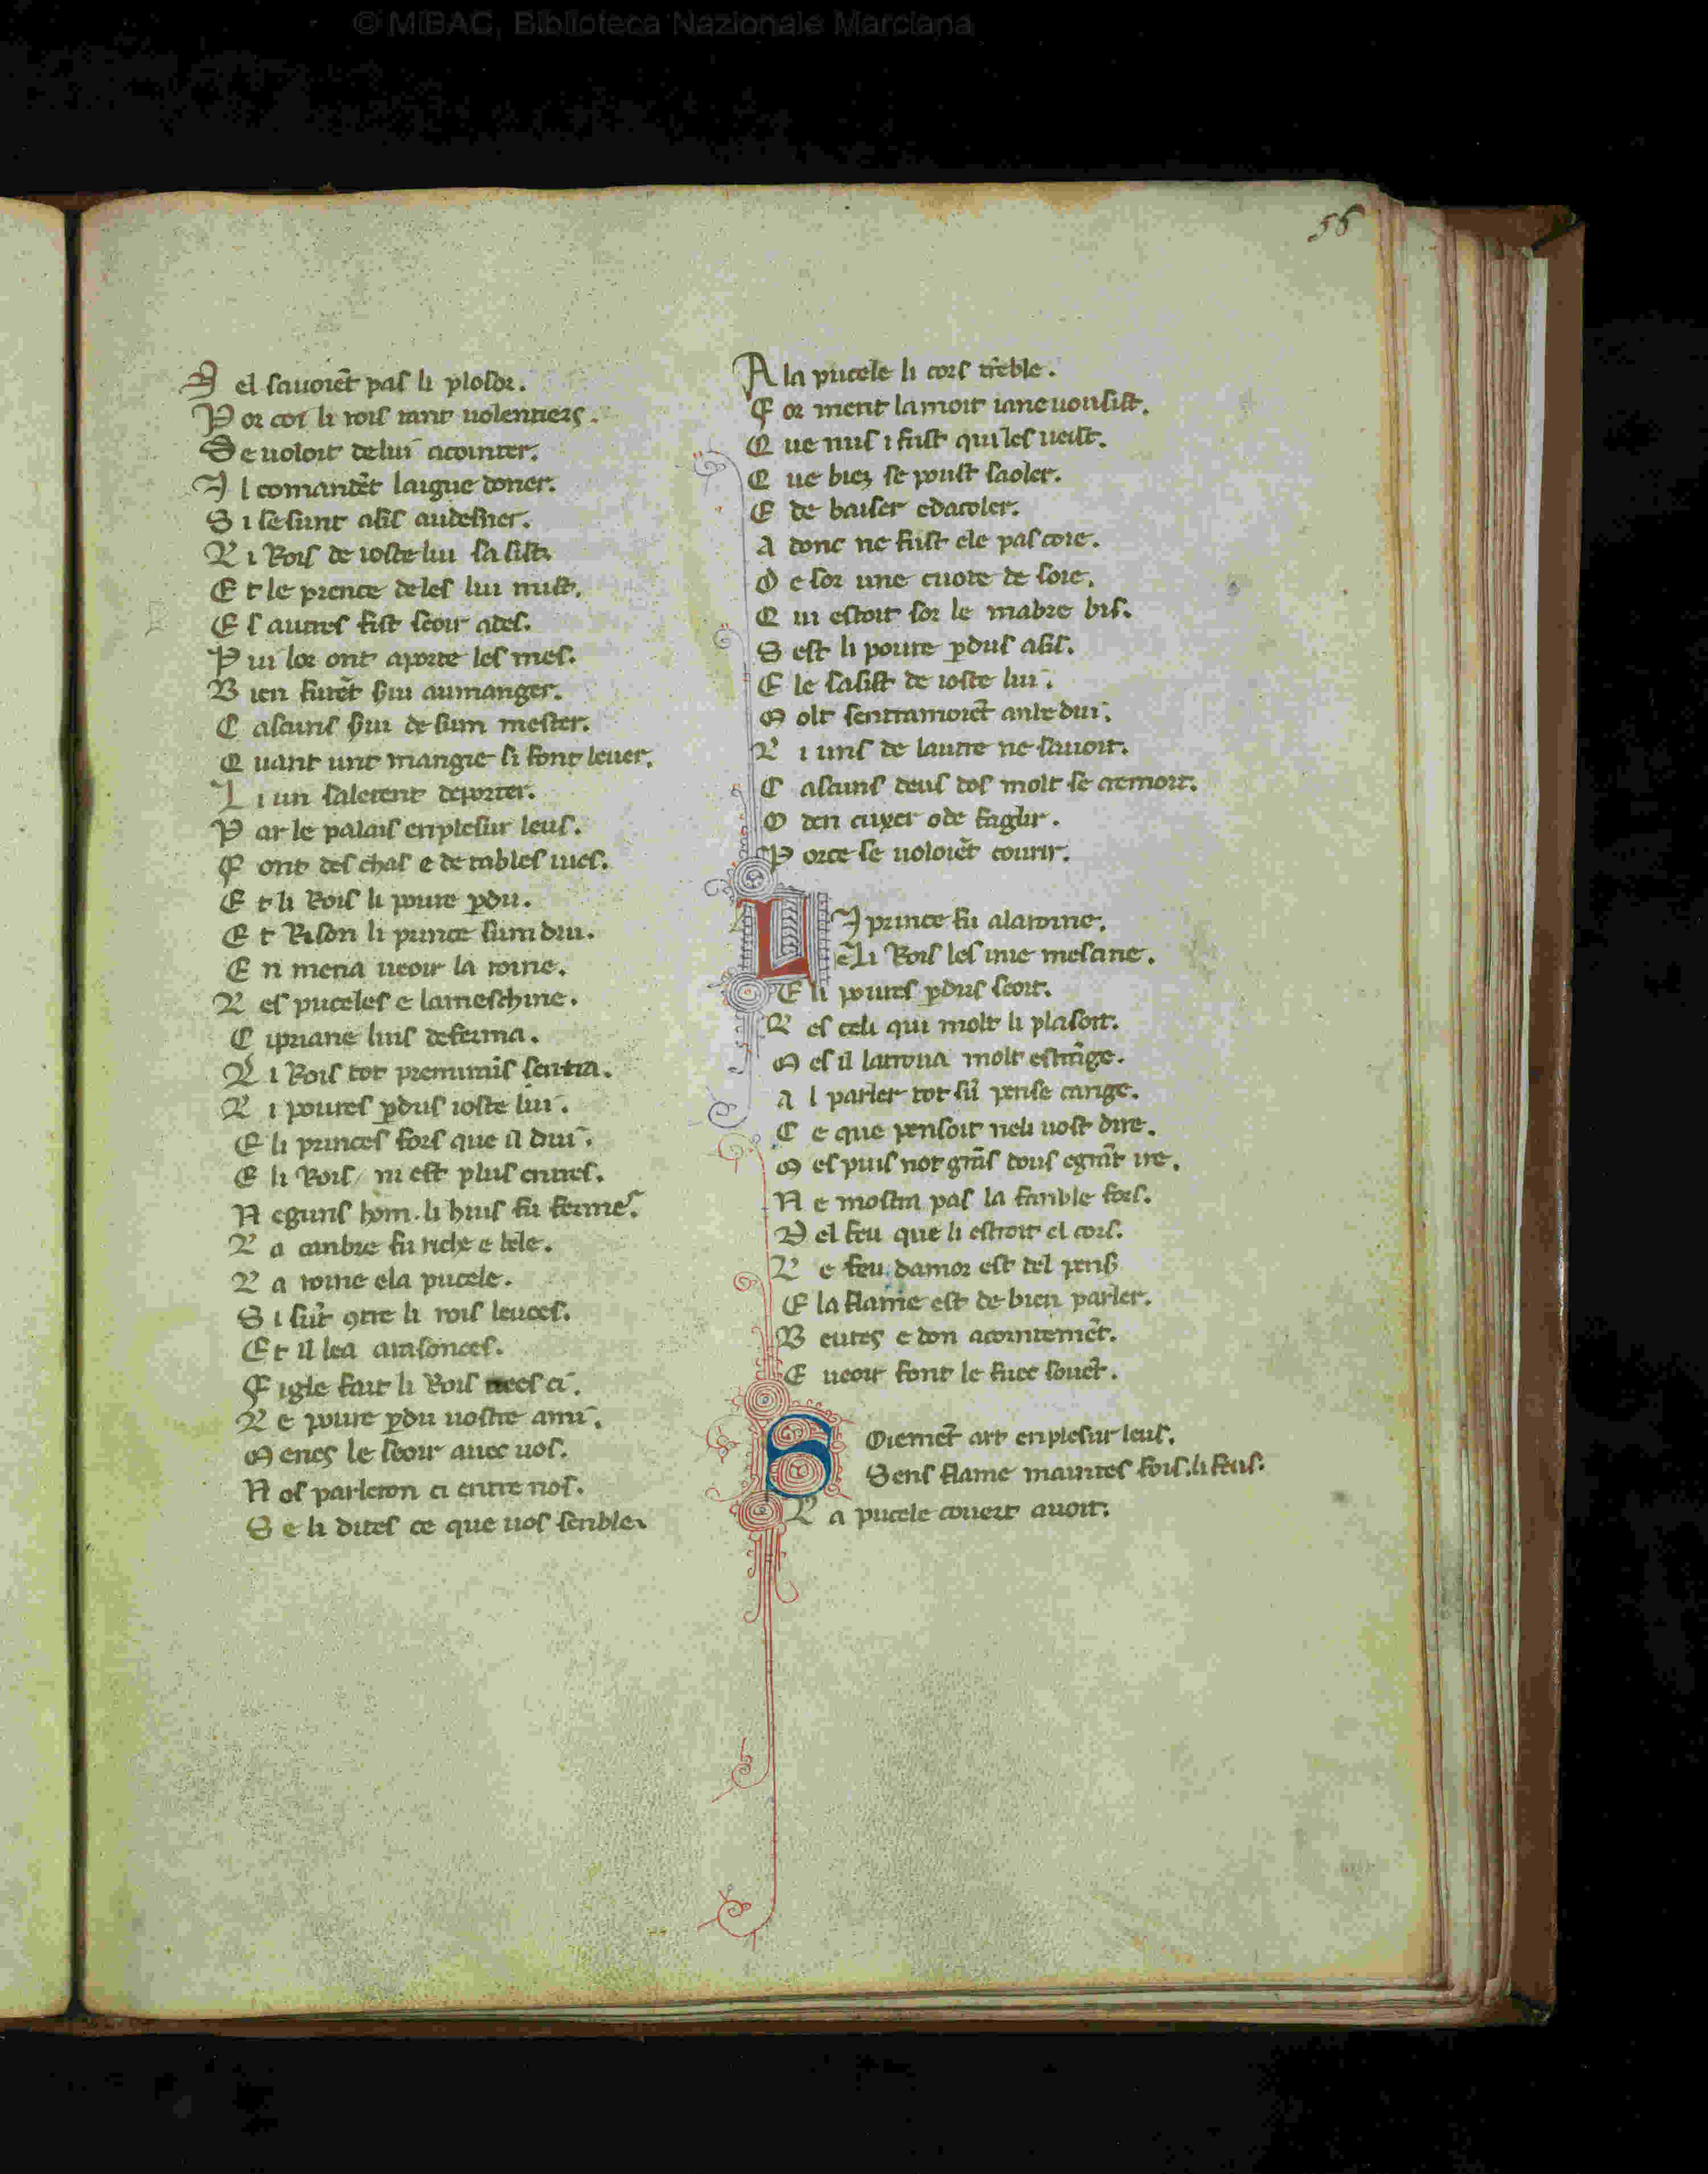 © MiBAC, Biblioteca Nazionale Marciana
56
N el sauoiēt pas li plosor.
P or coi li rois tant uolentiers.
S e uoloit de lui acointer.
I l comandēt laigue doner.
S i se sunt asis au desner.
L i Rois de ioste lui sasist.
E t le prence deles lui mist.
E s autres fist seoir ades.
P ui lor ont aporte les mes.
B ien furēt serui au manger.
C ascuns serui de sum mester.
Q uant unt mangie si font leuer.
L i un salerent deporter.
P ar le palais en plesur leus.
F ont des chas e de tables iues.
E t li Rois li poure perdu.
E t li prince
E n mena ueoir la roine.
L es puceles e la meschine.
C ipriane luis deferma.
L i Rois tot premirās sen tra.
L i poures perdus ioste lui.
E li princes fors que il dui.
E li Rois ni est plus entres.
N eguns hom. li huis fu fermes.
L a cambre fu riche e bele.
L a roine e la pucele.
S i sūt 9tre li rois leuees.
E t il les a araisonees.
F igle fait li Rois uees ci.
L e poure perdu uostre ami.
M enes le seoir auec uos.
N os parleron ci entre nos.
S e li dites ce que uos senble.
A la pucele li cors trēble.
F or ment lamoit ia ne uousist.
Q ue nus i fust qui les ueist.
Q ue bien se poust saoler.
E de baiser e dacoler.
A donc ne fust ele pas coie.
D e sor une cuote de soie.
Q ui estoit sor le mabre bis.
S est li poure perdus asis.
E le sasist de ioste lui.
M olt sentramoiēt anbedui.
L i uns de lautre ne sauoit.
C ascuns deus dos molt se cremoit.
O den cuyer o de faglir.
P orce se uoloiēt courir.
LI prince fu a la roine.
E li Rois les une mescine.
E li poures perdus seoit.
L es celi qui molt li plasoit.
M es il la troua molt estrāge.
A l parler tot sū pense cange.
C e que pensoit ne li uost dire.
M es puis not grās dous e grāt ire.
N e mostra pas la fanble fors.
D el feu que li estoit el cors.
L e feu damor est del pens
E la flame est de bien parler.
B eutes e don acointemēt.
E ueoir font le fuec souēt.
SOiemēt art en plesur leus.
Sens flame maintes fois li feus.
L a pucele couert auoit.